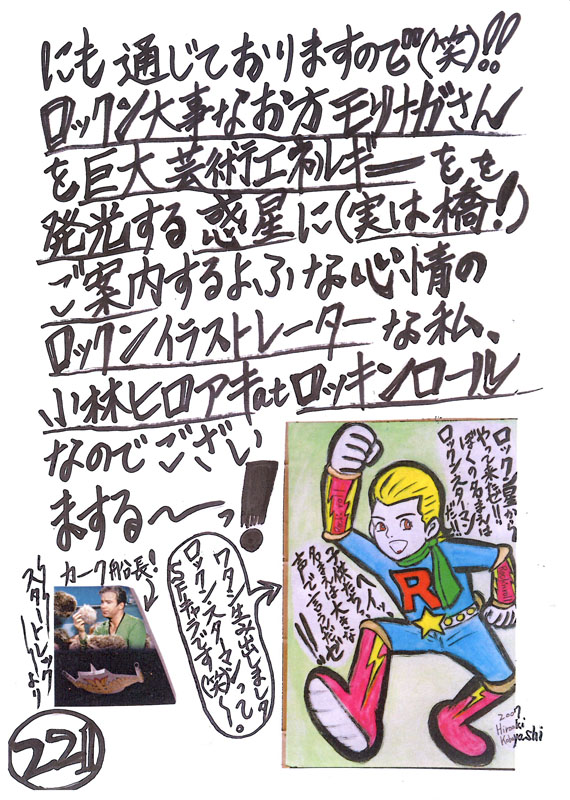 にも通じておりますので(笑)!!
ロックン大事なお方モリナガさん
を巨大芸術エネルギーをを
発光する惑星に(実は橋!)
ご案内するよふな心情の
ロックンイラストレーターな私、
小林ヒロアキatロッキンロール
なのでござい
まする〜っ!
カーク船長!
〜スタートレック〜より
ワタシ生み出しました
ロックンスターマンって。
SFキャラです(笑)〜
ロックン星から
やって来たぜ!!
ぼくの名まえは
ロックンスターマン
だ!!
ヘイッ
子供たち
名まえは大きな
声で言うんだぜ
!!
R
2007
Hiroaki
Kobayashi
221